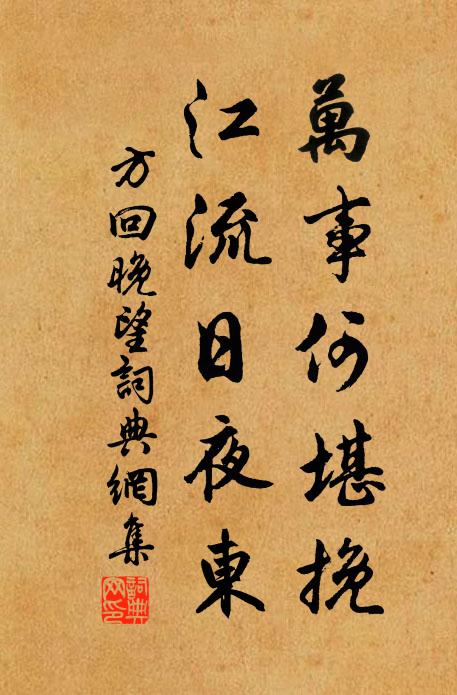 萬事何堪挽
江流日夜東
方回晚望詞典網集
詞典網印